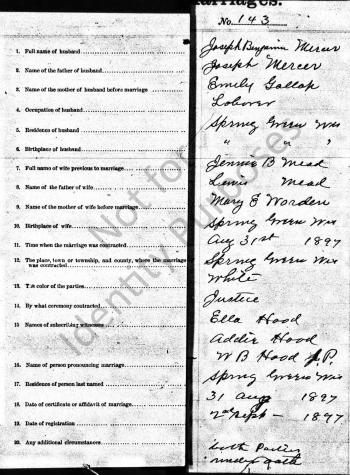 Marriages.
No. 143
1. Full name of husband Joseph Benjamin Mercer
2. Name of the father of husband Joseph Mercer
3. Name of the mother of husband before marriage Emily Gallop
4. Occupation of husband Laborer
5. Residence of husband Spring Green Wis
6. Birthplace of husband " " "
7. Full name of wife previous to marriage Jennie B Mead
8. Name of the father of wife Lewis Mead
9. Name of the mother of wife before marriage Mary E Worden
10. Birthplace of wife Spring Green Wis
11. Time when the marriage was contracted Aug 31st 1897
12. The place, town or township, and county, where the marriage was contracted Spring Green Wis
13. The color of the parties White
14. By what ceremony contracted Justice
15. Names of subscribing witnesses Ella Hood
Addie Hood
16. Name of person pronouncing marriage W B Hood J.P.
17. Residence of person last named Spring Green Wis
18. Date of certificate or affidavit of marriage 31 Aug 1897
19. Date of registration 2nd Sept - 1897
20. Any additional circumstances both Parties
under oath
Not for
Identity Purposes